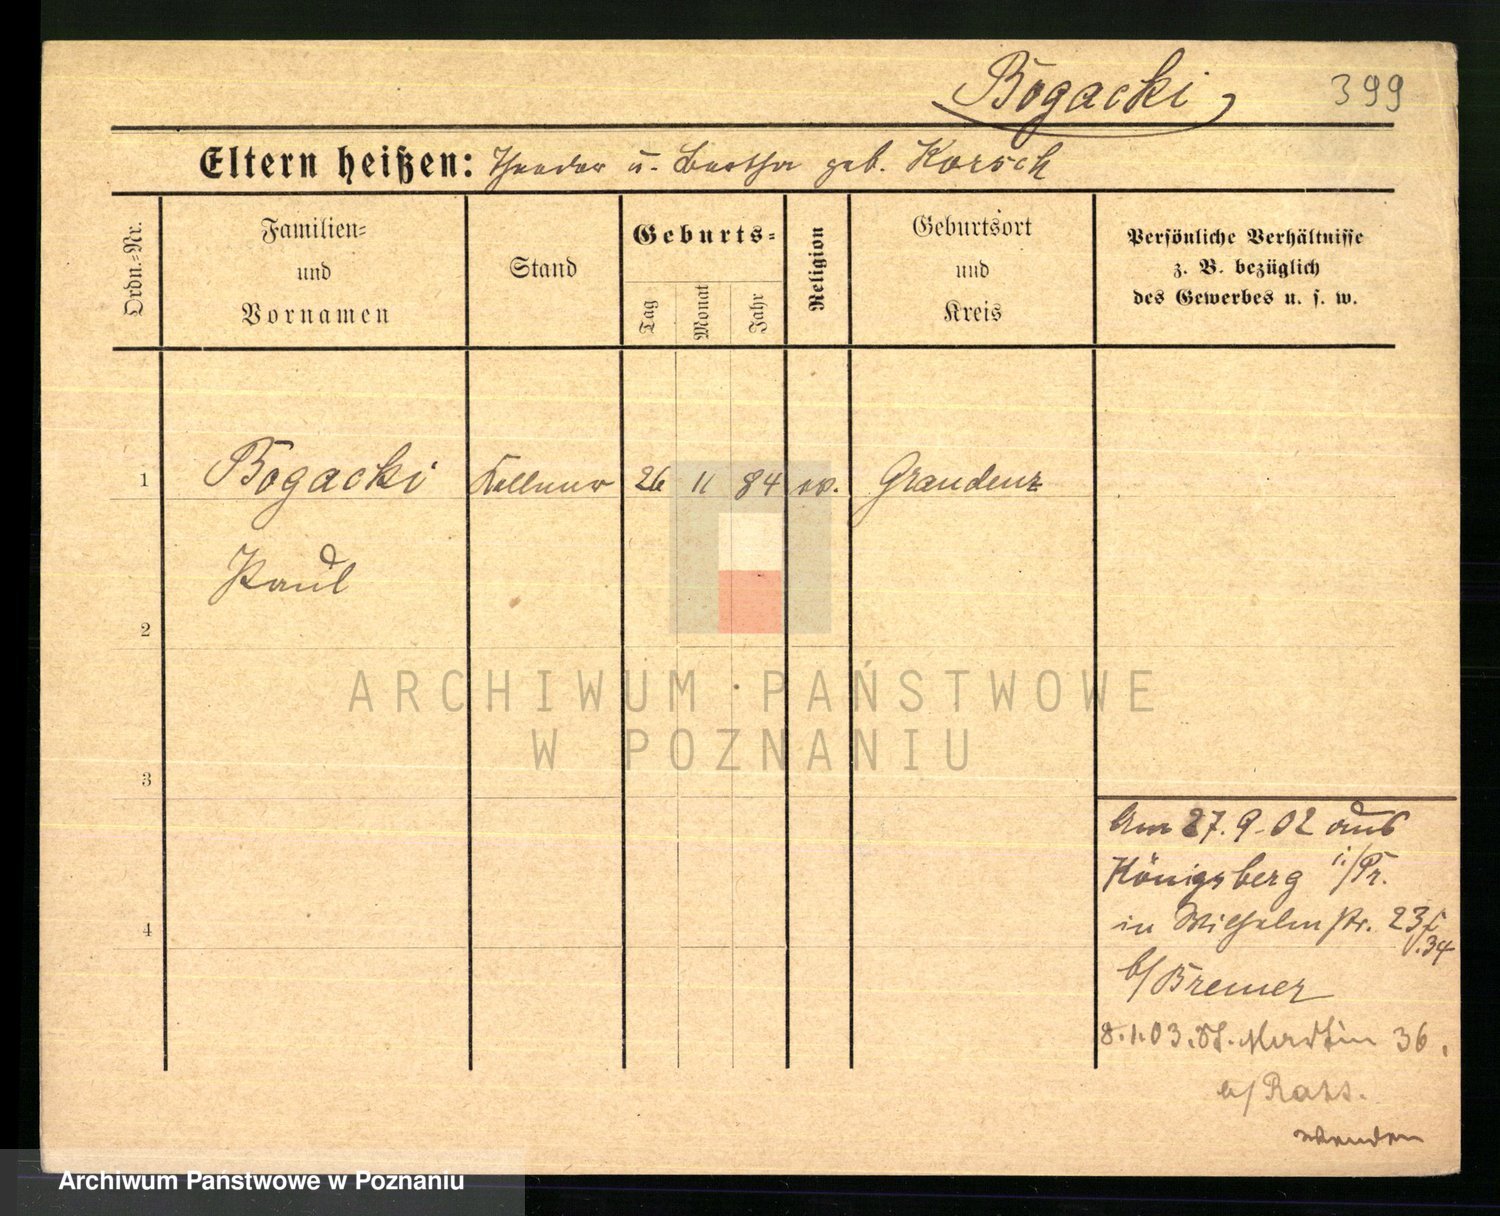 Bogacki 399
Eltern heißen: Theodor u. Bertha geb. Korsch
Ordn.-Nr.
Familien-
und
Vornamen
Stand
Geburts-
Tag
Monat
Jahr
Religion
Geburtsort
und
Kreis
Persönliche Verhältnisse
z. B. bezüglich
des Gewerbes u. s. w.
1 Bogacki Kellner 26 11 84 ev. Graudenz
Paul
2
3
4
ARCHIWUM PAŃSTWOWE
W POZNANIU
Am 27.9.02 aus
Königsberg i/Pr.
in Wilhelmstr. 23
b/Bremer
8.1.03. St. Martin 36.
b/
wenden
Archiwum Państwowe w Poznaniu